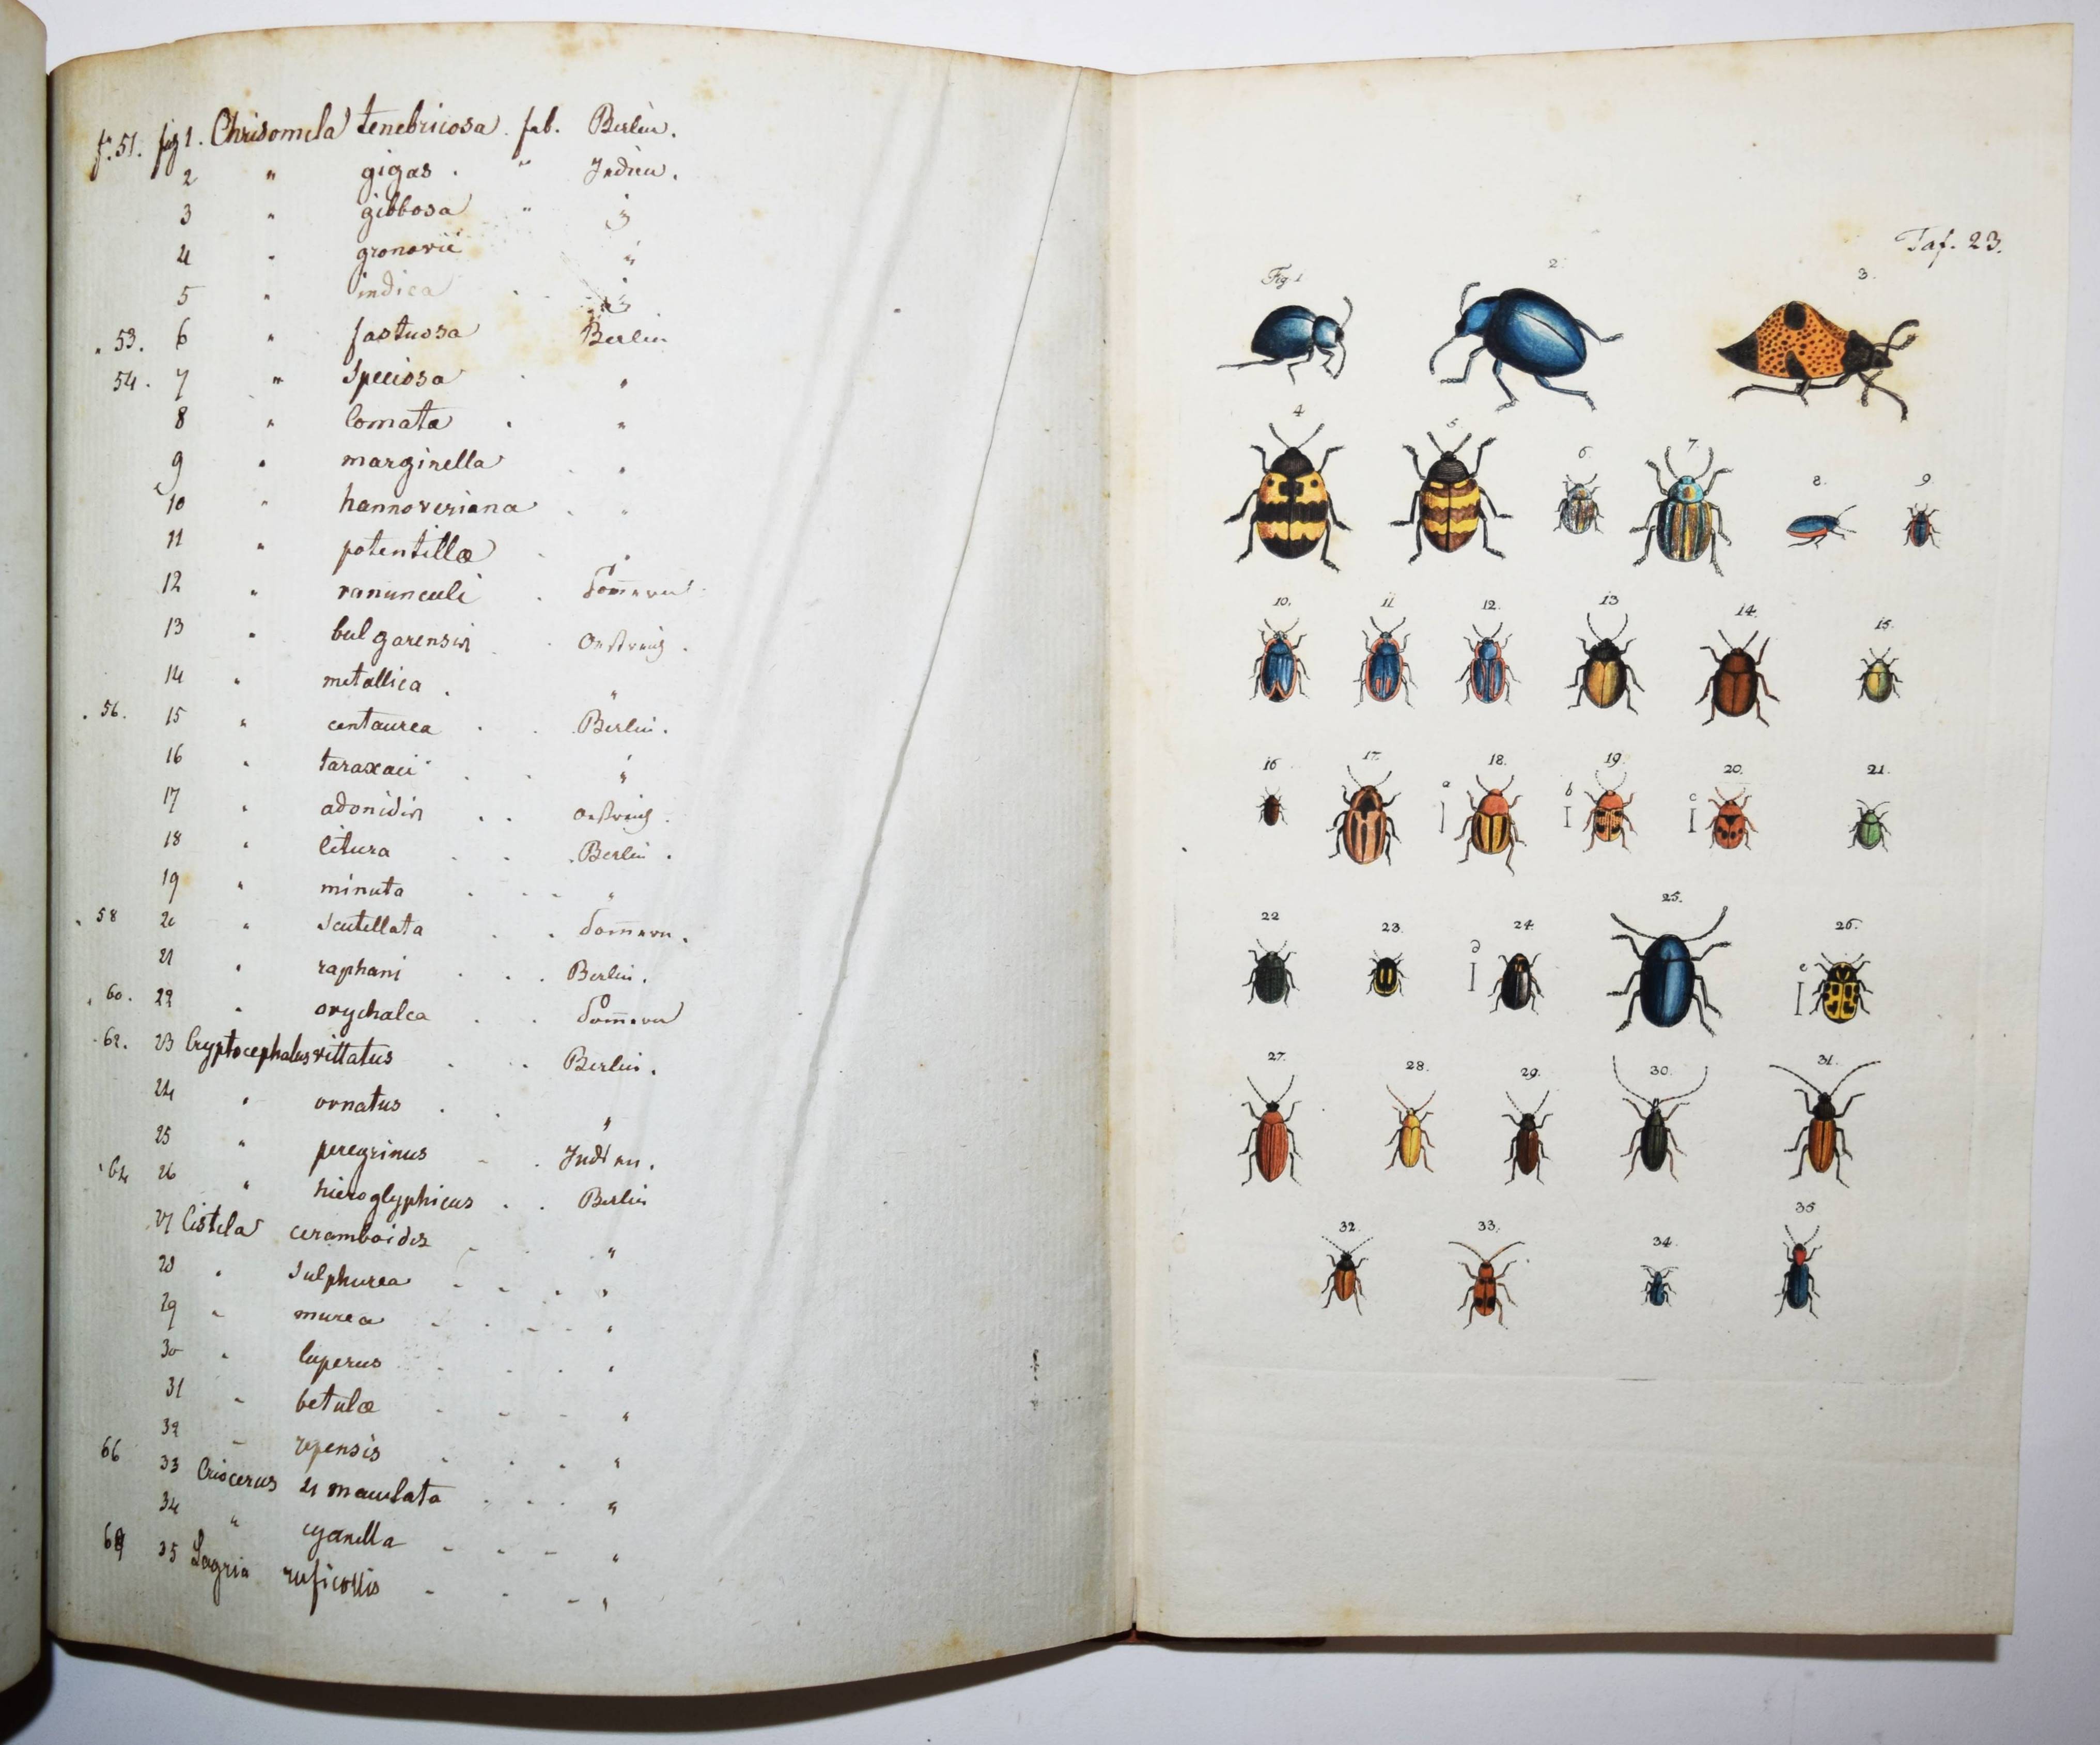 f. 51. fig 1. Chrisomela tenebricosa. fab. Berlin.
2 " gigas. " Indien.
3 " gibbosa "
4 " gronovii "
5 " indica
. 53. 6 " fastuosa Berlin
54. 7 " Speciosa "
8 " Comata . "
9 " marginella . "
10 " hannoveriana . "
11 " potentillæ "
12 " ranunculi .
13 " bulgarensis .
14 " metallica . "
. 56. 15 " centaurea . . Berlin.
16 " taraxaci . . "
17 " adonidis . .
18 " litura . . Berlin.
19 " minuta . . "
. 58 20 " Scutellata . .
21 " raphani . . . Berlin.
. 60. 22 " orychalca . .
. 62. 23 Cryptocephalus vittatus . . Berlin.
24 " ornatus . . "
25 " peregrinus . Indien.
64 26 " hieroglyphicus . . Berlin
27 Cistela ceramboides "
28 " Sulphurea "
29 " murea "
30 " luperus "
31 " betulæ "
32 " "
66 33 Criocerus maculata "
34 " cyanella "
35 Lagria ruficollis "
Taf. 23.
Fig. 1 2. 3.
4 5. 6. 7. 8. 9.
10. 11. 12. 13 14. 15.
16 17. a 18. b 19. c 20. 21.
22 23. d 24. 25. e 26.
27. 28. 29. 30. 31.
32. 33. 34. 35